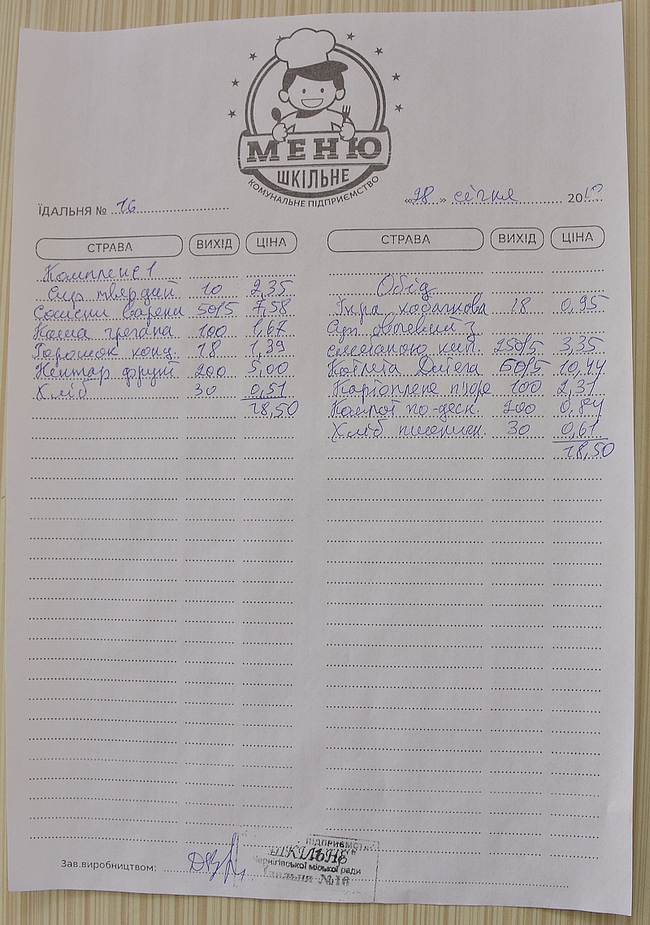 МЕНЮ
ШКІЛЬНЕ
КОМУНАЛЬНЕ ПІДПРИЄМСТВО
ЇДАЛЬНЯ № 16
«28» січня 20
СТРАВА ВИХІД ЦІНА
Комплекс 1
Сир твердий 10 2,35
Сосиски варени 50/5 7,58
Каша гречана 100 1,67
Горошок конс. 18 1,39
Нектар фрукт 200 5,00
Хліб 30 0,51
18,50
СТРАВА ВИХІД ЦІНА
Обід
Ікра кабачкова 18 0,95
Суп овочевий з
сметаною 250/5 3,35
Котлета 50/5 10,44
Картопляне пюре 100 2,31
Компот по-деск. 200 0,84
Хліб пшеничн. 30 0,61
18,50
Зав.виробництвом:
ПІДПРИЄМСТВО
ШКІЛЬНЕ
Чернігівської міської ради
їдальня №16